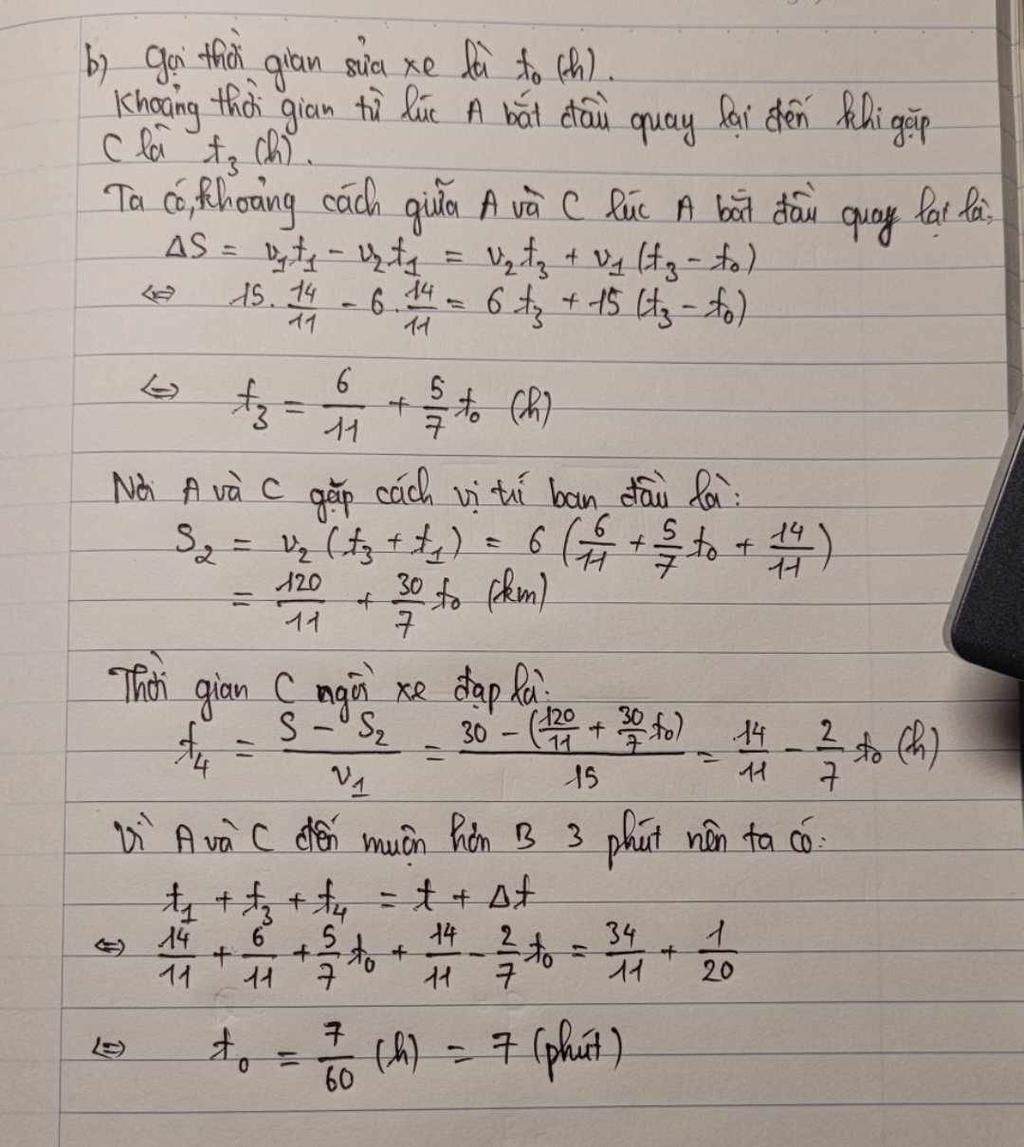 b) Gọi thời gian sửa xe là t₀ (h).
Khoảng thời gian từ lúc A bắt đầu quay lại đến khi gặp
C là t₃ (h).
Ta có, khoảng cách giữa A và C lúc A bắt đầu quay lại là:
ΔS = v₁t₁ - v₂t₁ = v₂t₃ + v₁(t₃ - t₀)
⇔ 15.14/11 - 6.14/11 = 6t₃ + 15(t₃ - t₀)
⇔ t₃ = 6/11 + 5/7 t₀ (h)
Nơi A và C gặp cách vị trí ban đầu là:
S₂ = v₂(t₃ + t₁) = 6(6/11 + 5/7 t₀ + 14/11)
= 120/11 + 30/7 t₀ (km)
Thời gian C ngồi xe đạp là:
t₄ = (S - S₂)/v₁ = (30 - (120/11 + 30/7 t₀))/15 = 14/11 - 2/7 t₀ (h)
Vì A và C đến muộn hơn B 3 phút nên ta có:
t₁ + t₃ + t₄ = t + Δt
⇔ 14/11 + 6/11 + 5/7 t₀ + 14/11 - 2/7 t₀ = 34/11 + 1/20
⇔ t₀ = 7/60 (h) = 7 (phút)